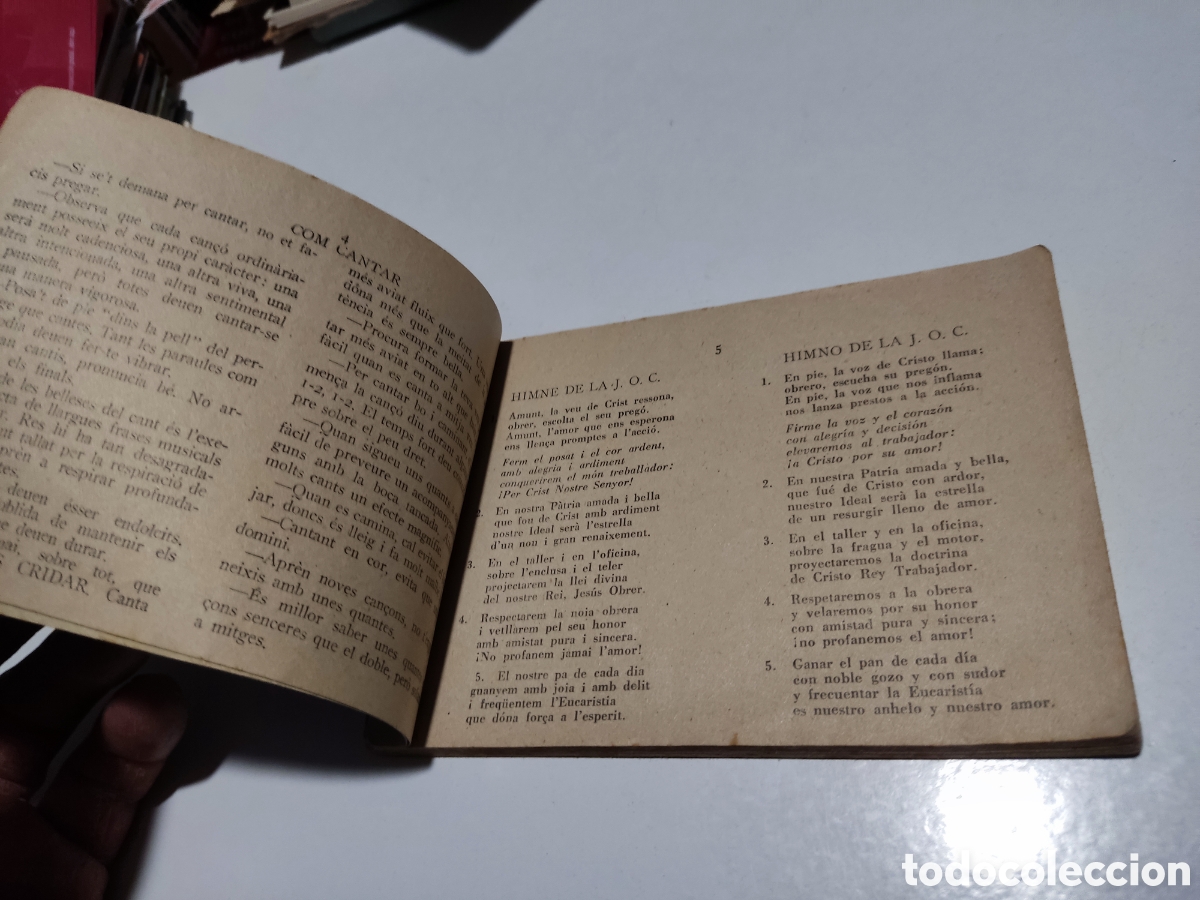 4
COM CANTAR
—Si se't demana per cantar, no et fa-
cis pregar.
—Observa que cada cançó ordinària-
ment posseeix el seu propi caràcter: una
serà molt cadenciosa, una altra viva, una
altra intencionada, una altra sentimental
pausada, però totes deuen cantar-se
una manera vigorosa.
—Posa't de p'e "dins la pell" del per-
que cantes. Tant les paraules com
deuen fer-te vibrar.
cantis, pronuncia bé. No ar-
els finals.
de les belleses del cant és l'exe-
de llargues frases musicals
Res hi ha tan desagrada-
tallat per la respiració de
a respirar profunda-
deuen ésser endolcits,
de mantenir els
deuen durar.
sobre tot, que
CRIDAR Canta
més aviat fluix que fort. 
dóna més que la meitat de
tència és sempre bella
—Procura formar la
tar més aviat en to alt que
fàcil quan es canta a mitja
—Per cantar bo i caminant,
mença la cançó diu durant
1-2, 1-2. El temps fort deu
pre sobre el peu dret.
—Quan sigueu uns quants
fàcil de preveure un acompanya
guns amb la boca tancada.
molts cants un efecte magnífic.
—Quan es camina, cal evitar
jar, doncs és lleig i fa molt
—Cantant en cor, evita que
domini.
—Aprèn noves cançons, no
neixis amb unes quantes.
—És millor saber unes quantes
çons senceres que el doble, però
a mitges.
5
HIMNE DE LA J. O. C.
Amunt, la veu de Crist ressona,
obrer, escolta el seu pregó.
Amunt, l'amor que ens esperona
ens llença promptes a l'acció.
Ferm el posat i el cor ardent,
amb alegria i ardiment
conquerirem el món treballador:
¡Per Crist Nostre Senyor!
2. En nostra Pàtria amada i bella
que fou de Crist amb ardiment
nostre Ideal serà l'estrella
d'un nou i gran renaixement.
3. En el taller i en l'oficina,
sobre l'enclusa i el teler
projectarem la llei divina
del nostre Rei, Jesús Obrer.
4. Respectarem la noia obrera
i vetllarem pel seu honor
amb amistat pura i sincera.
¡No profanem jamai l'amor!
5. El nostre pa de cada dia
guanyem amb joia i amb delit
i freqüentem l'Eucaristia
que dóna força a l'esperit.
HIMNO DE LA J. O. C.
1. En pie, la voz de Cristo llama;
obrero, escucha su pregón.
En pie, la voz que nos inflama
nos lanza prestos a la acción.
Firme la voz y el corazón
con alegría y decisión
elevaremos al trabajador:
¡a Cristo por su amor!
2. En nuestra Patria amada y bella,
que fué de Cristo con ardor,
nuestro Ideal será la estrella
de un resurgir lleno de amor.
3. En el taller y en la oficina,
sobre la fragua y el motor,
proyectaremos la doctrina
de Cristo Rey Trabajador.
4. Respetaremos a la obrera
y velaremos por su honor
con amistad pura y sincera;
¡no profanemos el amor!
5. Ganar el pan de cada día
con noble gozo y con sudor
y frecuentar la Eucaristía
es nuestro anhelo y nuestro amor.
todocoleccion